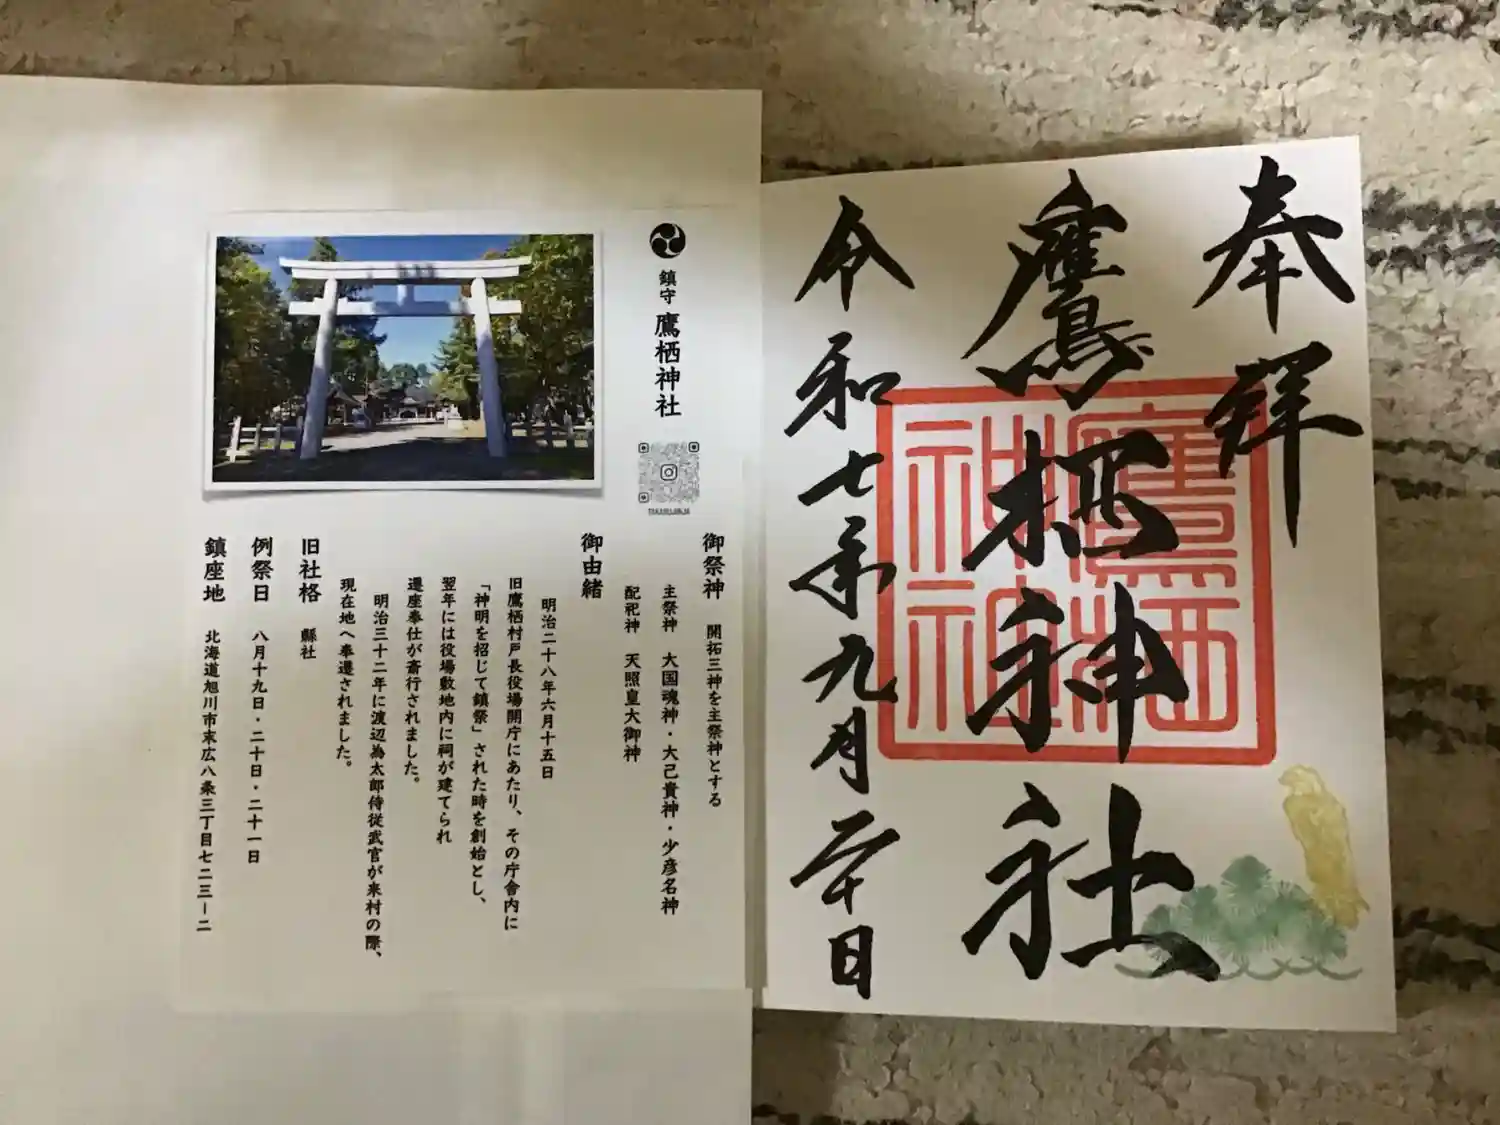 奉拝
鷹栖神社
令和七年九月二十日
鷹栖
神社
鎮守 鷹栖神社
御祭神 開拓三神を主祭神とする
主祭神 大国魂神・大己貴神・少彦名神
配祀神 天照皇大御神
御由緒
明治二十八年六月十五日
旧鷹栖村戸長役場開庁にあたり、その庁舎内に
「神明を招じて鎮祭」された時を創始とし、
翌年には役場敷地内に祠が建てられ
遷座奉仕が斎行されました。
明治三十二年に渡辺為太郎侍従武官が来村の際、
現在地へ奉遷されました。
旧社格 縣社
例祭日 八月十九日・二十日・二十一日
鎮座地 北海道旭川市末広八条三丁目七二三ー二